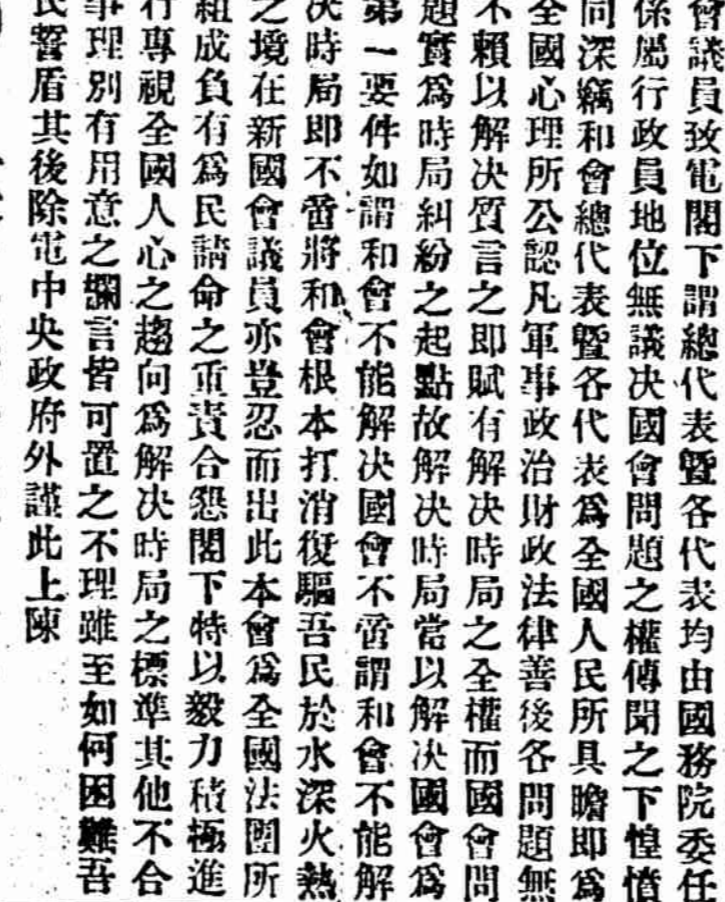 會議員致電閣下謂總代表曁各代表均由國務院委任
係屬行政員地位無議决國會問題之權傳聞之下惶憤
同深竊和會總代表曁各代表爲全國人民所具瞻即爲
全國心理所公認凡軍事政治財政法律善後各問題無
不賴以解决質言之即賦有解决時局之全權而國會問
題實爲時局糾紛之起點故解决時局當以解决國會爲
第一要件如謂和會不能解决國會不啻謂和會不能解
决時局即不啻將和會根本打消復驅吾民於水深火熱
之境在新國會議員亦豈忍而出此本會爲全國法團所
組成負有爲民請命之重責合懇閣下特以毅力積極進
行專視全國人心之趨向爲解决時局之標準其他不合
事理別有用意之讕言皆可置之不理雖至如何困難吾
民誓盾其後除電中央政府外謹此上陳